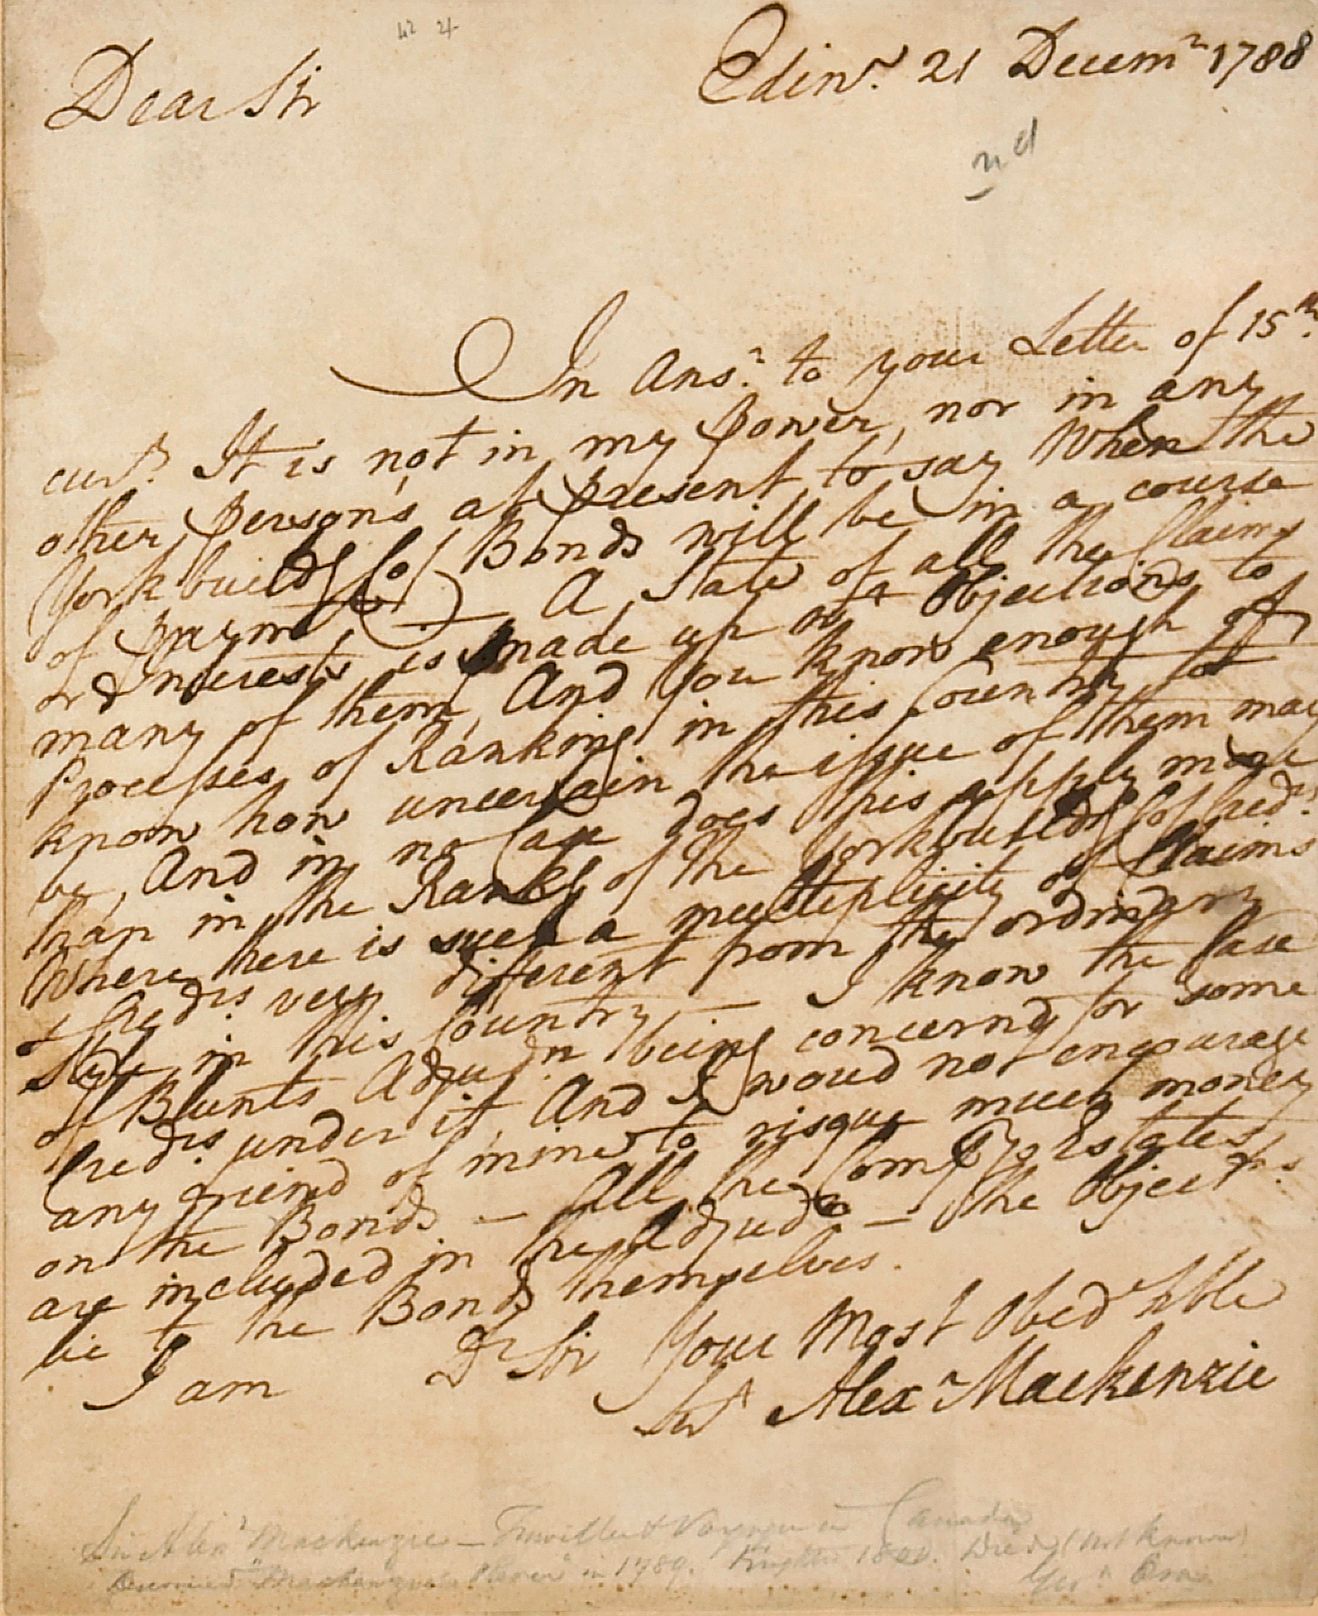 Dear Sir
Edinr. 21 Decemr 1788
In Ansr. to your Letter of 15th.
curt. It is not in my power, nor in any
other person's at present to say When the
Yorkbuildg Co/ Bonds will be in a course
of payment A State of all the Claims
& Interests is made up wt Objections to
many of them, And you know enough of
Processes of Ranking in this Country to
know how uncertain the issue of them may
be, And in no Case does this apply more
than in the Rankg of the Yorkbuildg Co/ Creds.
Where there is such a multeplicity of Claims
& Creds. very different from the ordinary
Style in this Country — I know the Case
of Blunts Adjudn being concernd for some
Creds. under it, And I woud not encourage
any friend of mine to risque much money
on the Bonds — All the Compys Estates
are included in the Adjudn — The Objectns.
lie to the Bonds themselves.
I am Dr Sir Your Most Obedt Hble
Sert Alexr Mackenzie
Sir Alexr Mackenzie — Traveller & Voyager in Canada
Discovered "Mackenzie's River" in 1789. Knighted Died (not known)